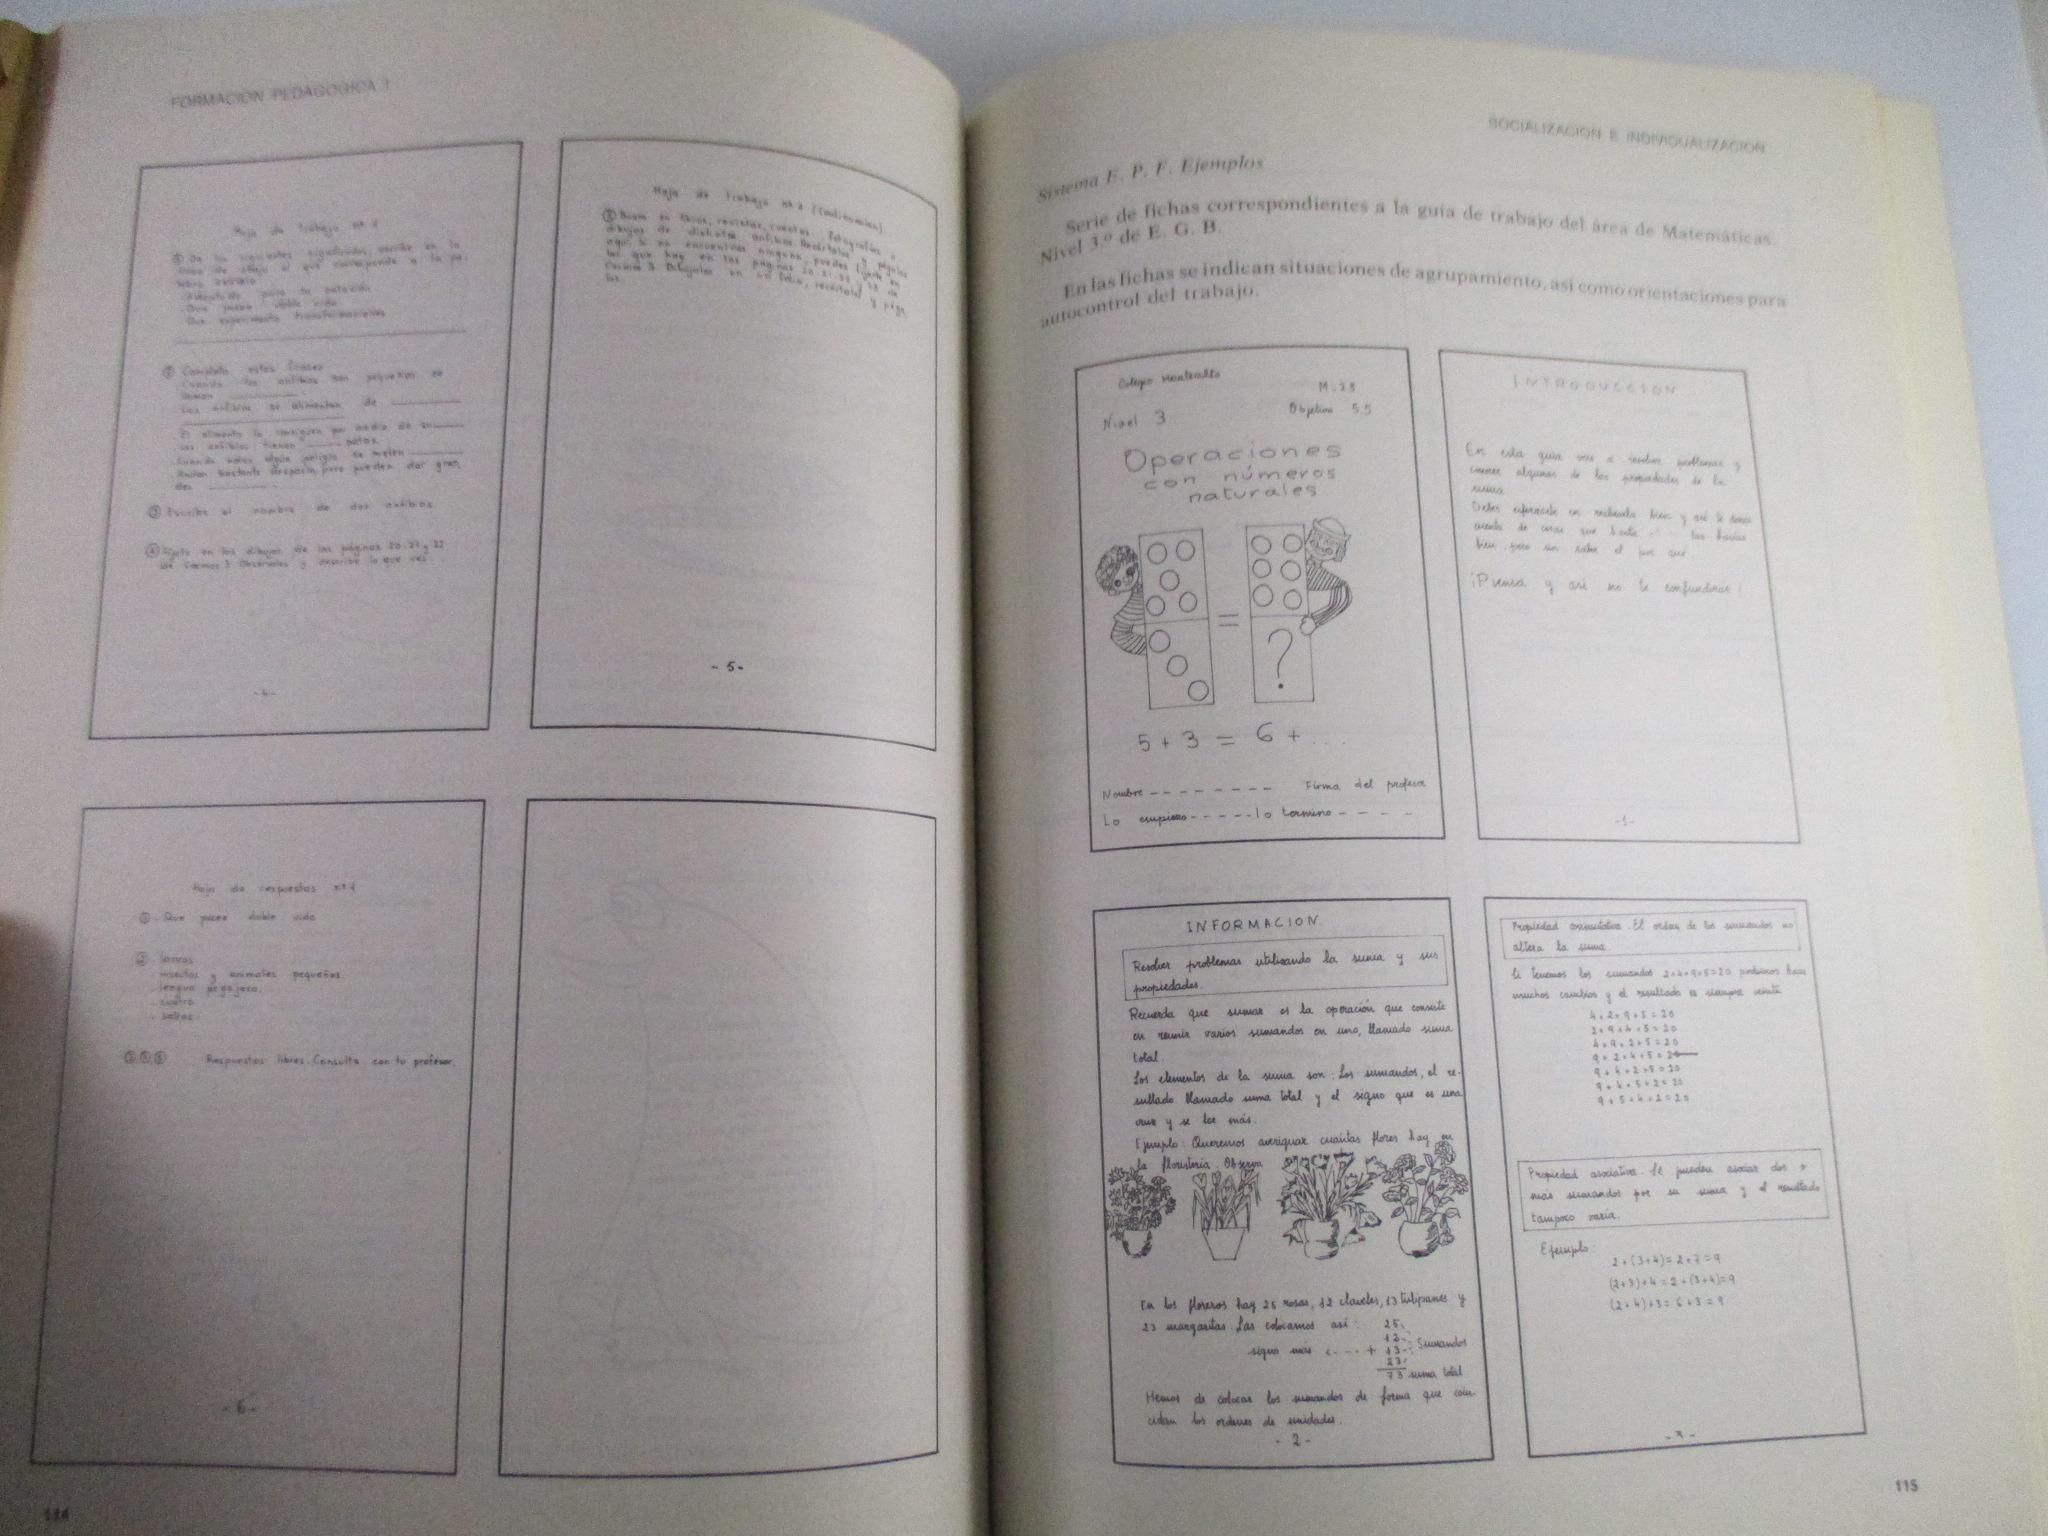 FORMACION PEDAGOGICA I
Hoja de trabajo nº 1
① De los siguientes significados, escribe en la
línea de abajo el que corresponde a la pa-
labra anfibio
. Adaptado para la natación
. Que posee doble vida
. Que experimenta transformaciones
② Completa estas frases
Cuando los anfibios son pequeños se
llaman
Los anfibios se alimentan de
El alimento lo consiguen por medio de su
Los anfibios tienen patas
Cuando notan algún peligro se meten
Andan bastante despacio, pero pueden dar gran
des
③ Escribe el nombre de dos anfibios.
④ Fíjate en los dibujos de las páginas 20, 21 y 22
de Cosmos 3. Obsérvalos y describe lo que ves.
- 4 -
Hoja de trabajo nº 1 (Continuación)
⑤ Busca en libros, revistas, cuentos... fotografías o
dibujos de distintos anfibios. Recórtalos y pégalos
aquí. Si no encuentras ninguno, puedes fijarte en
los que hay en las páginas 20, 21, 22 y 23 de
Cosmos 3. Dibújalos en un folio, recórtalos y péga
los.
- 5 -
Hoja de respuestas nº 1
① . Que posee doble vida
② . larvas
. insectos y animales pequeños.
. lengua pegajosa.
. cuatro
. saltos
③ ④ ⑤ Respuestas libres. Consulta con tu profesor.
- 6 -
114
SOCIALIZACION E INDIVIDUALIZACION
Sistema E. P. F. Ejemplos
Serie de fichas correspondientes a la guía de trabajo del área de Matemáticas.
Nivel 3.º de E. G. B.
En las fichas se indican situaciones de agrupamiento, así como orientaciones para
autocontrol del trabajo.
Colegio Montealto
M-23
Nivel 3
Objetivo 5.5
Operaciones
con números
naturales
=
?
5 + 3 = 6 + ...
Nombre - - - - - - - - Firma del profesor
Lo empiezo - - - - - lo termino - - - -
INTRODUCCION
En esta guía vas a resolver problemas y
conocer algunas de las propiedades de la
suma.
Debes esforzarte en realizarla bien y así te darás
cuenta de cosas que hasta las hacías
bien pero sin saber el por qué.
¡Piensa y así no te confundirás!
-1-
INFORMACION
Resolver problemas utilizando la suma y sus
propiedades.
Recuerda que sumar es la operación que consiste
en reunir varios sumandos en uno, llamado suma
total.
Los elementos de la suma son: Los sumandos, el re-
sultado llamado suma total y el signo que es una
cruz y se lee más.
Ejemplo: Queremos averiguar cuántas flores hay en
la floristería. Observa
En los floreros hay 25 rosas, 12 claveles, 13 tulipanes y
23 margaritas. Las colocamos así: 25
12
signo más <- - - + 13 Sumandos
23
73 suma total
Hemos de colocar los sumandos de forma que coin-
cidan los ordenes de unidades.
- 2 -
Propiedad conmutativa. El orden de los sumandos no
altera la suma.
Si tenemos los sumandos 2+4+9+5=20 podemos hacer
muchos cambios y el resultado es siempre veinte
4+2+9+5=20
2+9+4+5=20
4+9+2+5=20
9+2+4+5=20
9+4+2+5=20
9+4+5+2=20
9+5+4+2=20
Propiedad asociativa. Se pueden asociar dos o
más sumandos por su suma y el resultado
tampoco varía.
Ejemplo:
2+(3+4)=2+7=9
(2+3)+4=2+(3+4)=9
(2+4)+3=6+3=9
- 3 -
115